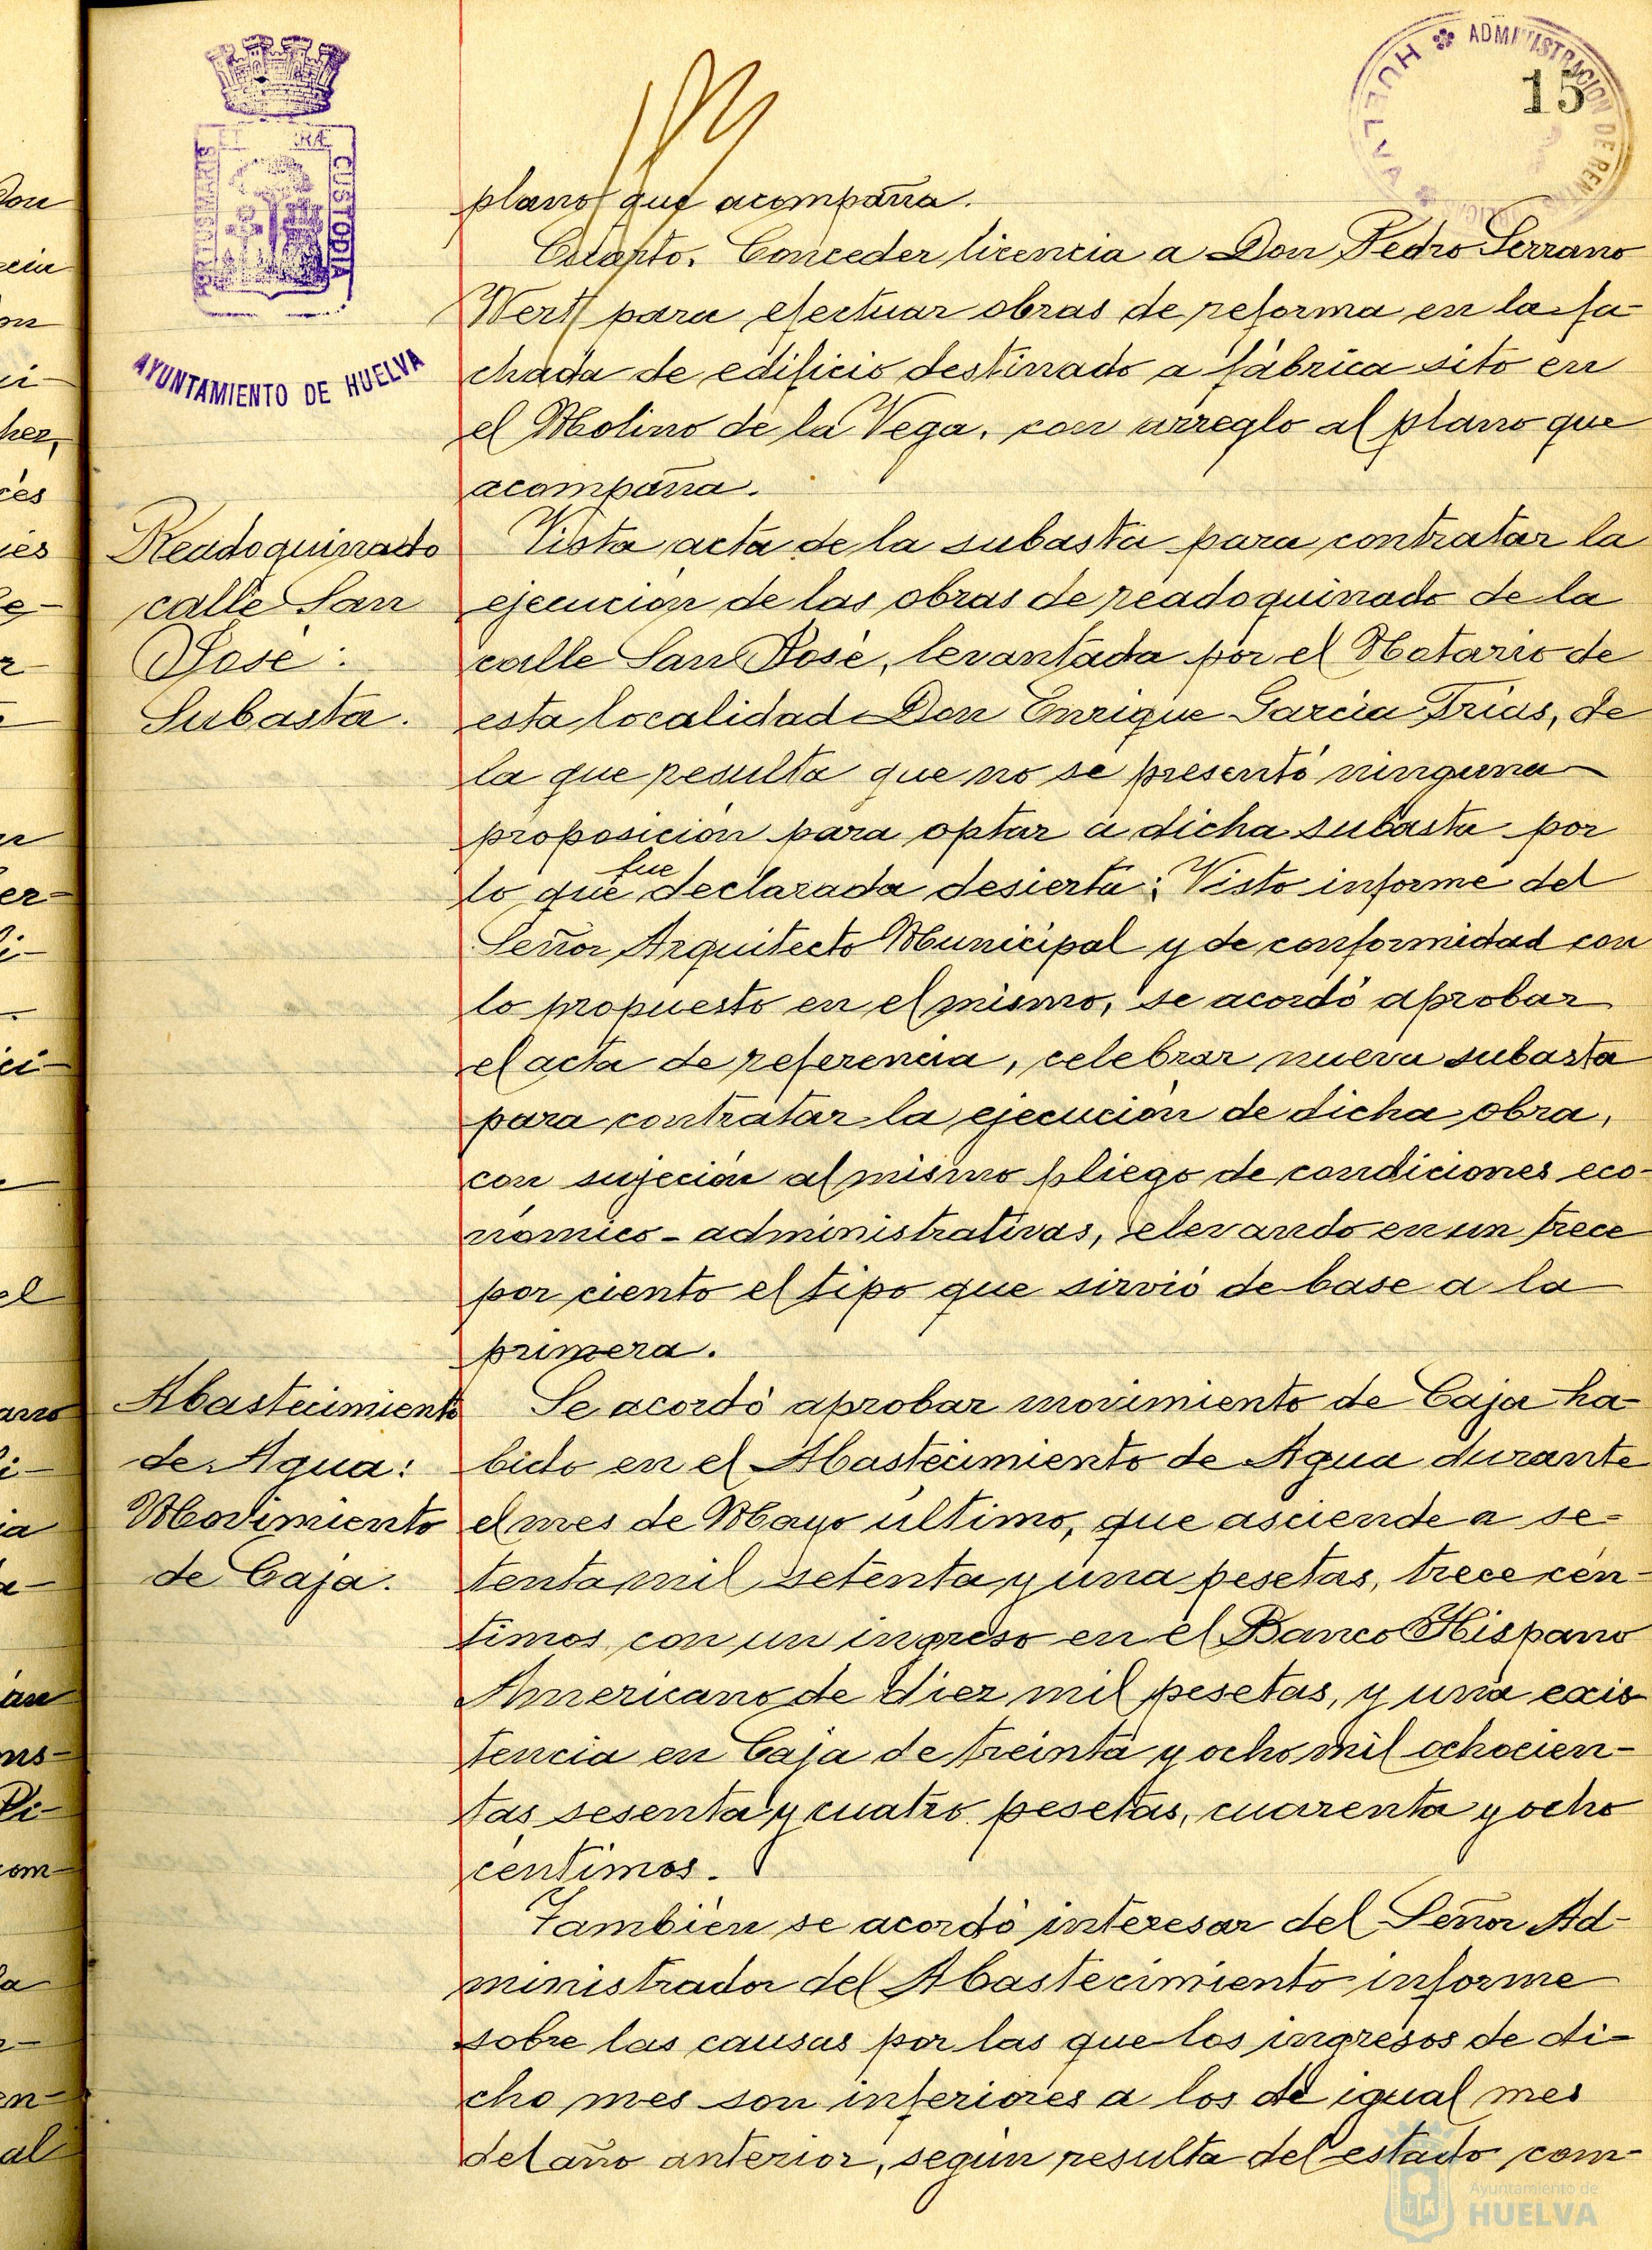 ADMINISTRACION DE RENTAS
HUELVA
15
PORTUS MARIS ET TERRÆ CUSTODIA
AYUNTAMIENTO DE HUELVA
plano que acompaña.
Cuarto. Conceder licencia a Don Pedro Serrano
Wert para efectuar obras de reforma en la fa-
chada de edificio destinado a fábrica sito en
el Molino de la Vega, con arreglo al plano que
acompaña.
Readoquinado
calle San
José:
Subasta.
Vista acta de la subasta para contratar la
ejecución de las obras de readoquinado de la
calle San José, levantada por el Notario de
esta localidad Don Enrique García Frías, de
la que resulta que no se presentó ninguna
proposición para optar a dicha subasta por
lo que fue declarada desierta: Visto informe del
Señor Arquitecto Municipal y de conformidad con
lo propuesto en el mismo, se acordó aprobar
el acta de referencia, celebrar nueva subasta
para contratar la ejecución de dicha obra,
con sujeción al mismo pliego de condiciones eco-
nómico-administrativas, elevando en un trece
por ciento el tipo que sirvió de base a la
primera.
Abastecimiento
de Agua:
Movimiento
de Caja.
Se acordó aprobar movimiento de Caja ha-
bido en el Abastecimiento de Agua durante
el mes de Mayo último, que asciende a se-
tenta mil setenta y una pesetas, trece cén-
timos con un ingreso en el Banco Hispano
Americano de diez mil pesetas, y una exis-
tencia en Caja de treinta y ocho mil ochocien-
tas sesenta y cuatro pesetas, cuarenta y ocho
céntimos.
También se acordó interesar del Señor Ad-
ministrador del Abastecimiento informe
sobre las causas por las que los ingresos de di-
cho mes son inferiores a los de igual mes
del año anterior, según resulta del estado com-
Ayuntamiento de
HUELVA